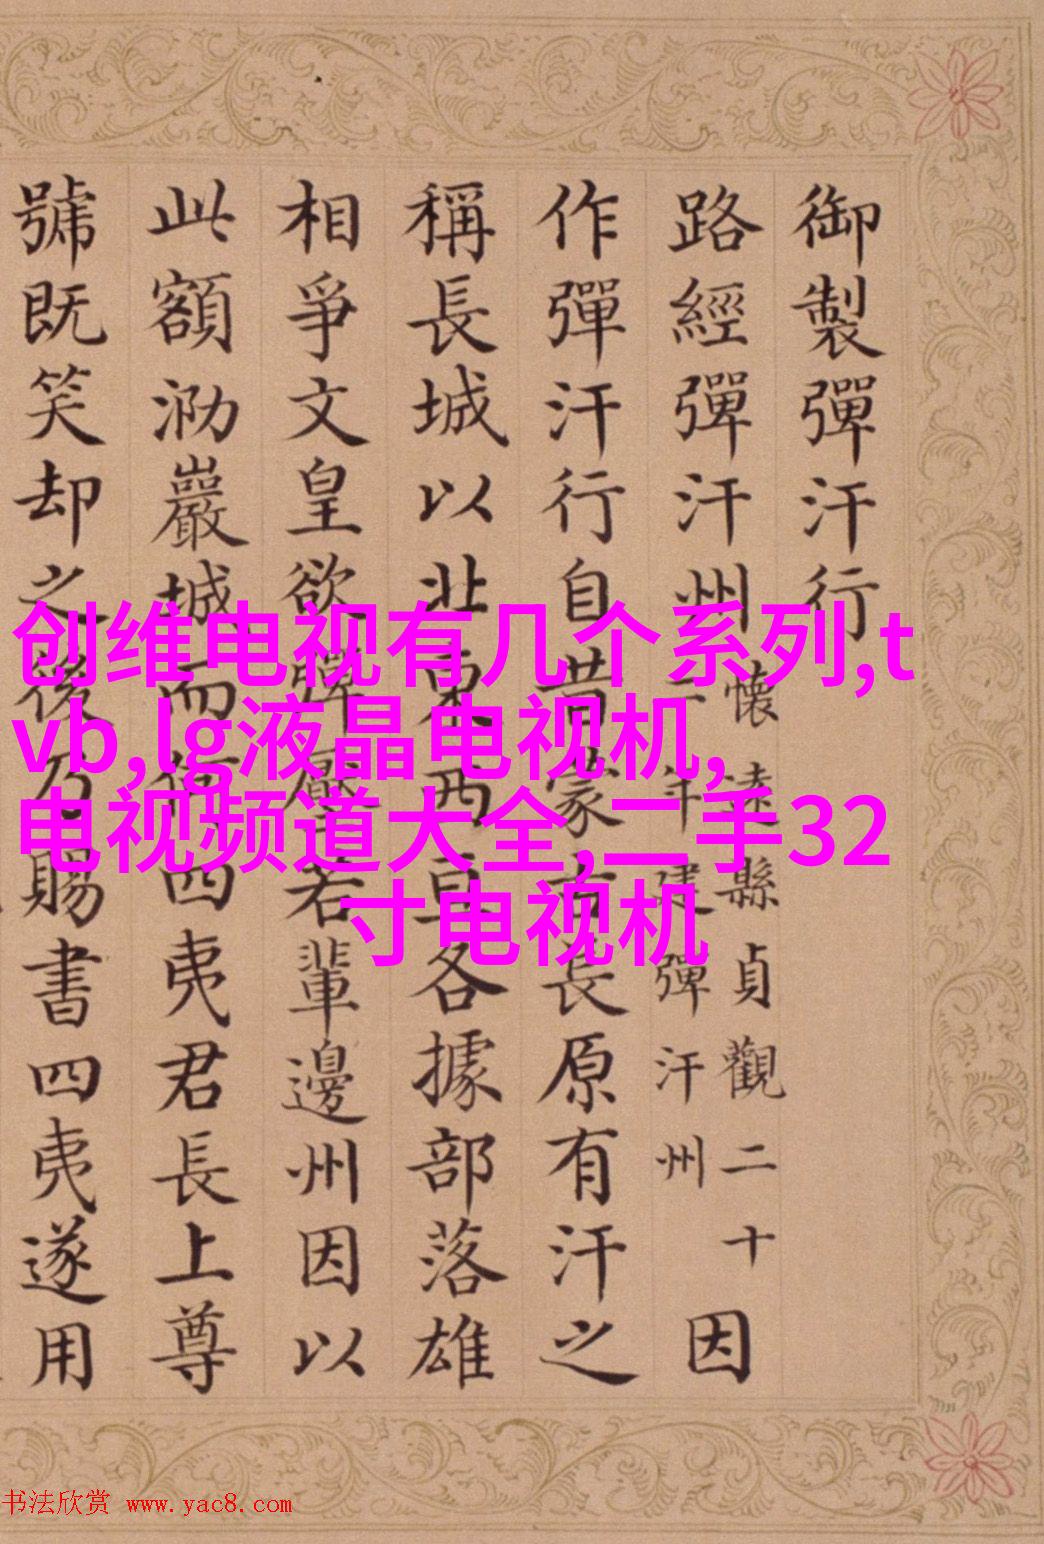 御製彈汗行
路經彈汗州
懷遠縣貞觀二十
二年建彈汗州
因
作彈汗行自昔蒙古長原有汗之
稱長城以北東西亘各據部落雄
相爭文皇欲彈壓若輩邊州因以
此額泐巖城而何四夷君長上尊
號既笑却之後乃賜書四夷遂用
创维电视有几个系列,t
vb,lg液晶电视机,
电视频道大全,二手32
寸电视机
书法欣赏 www.yac8.com